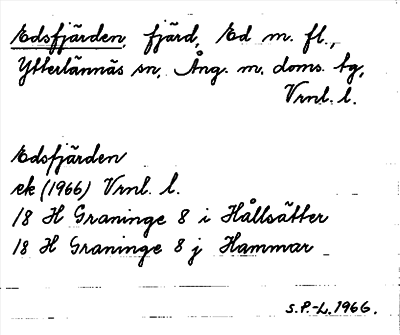 Edsfjärden, fjärd, Ed m. fl.,
Ytterlännäs sn, Ång. m. doms. tg,
Vrnl. l.
Edsfjärden
ek (1966) Vrnl. l.
18 H Graninge 8 i Hållsätter
18 H Graninge 8 j Hammar
S.P.-L. 1966.